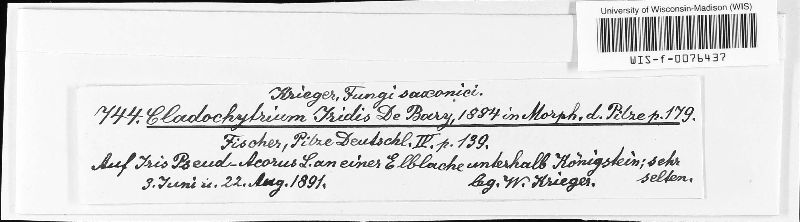 University of Wisconsin-Madison (WIS)
WIS-f-0076437
Krieger, Fungi saxonici.
744. Cladochytrium Iridis De Bary, 1884 in Morph. d. Pilze p. 179.
Fischer, Pilze Deutschl. IV. p. 139.
Auf Iris Pseud-Acorus L. an einer Elblache unterhalb Königstein; sehr
selten.
3. Juni u. 22. Aug. 1891. leg. W. Krieger.